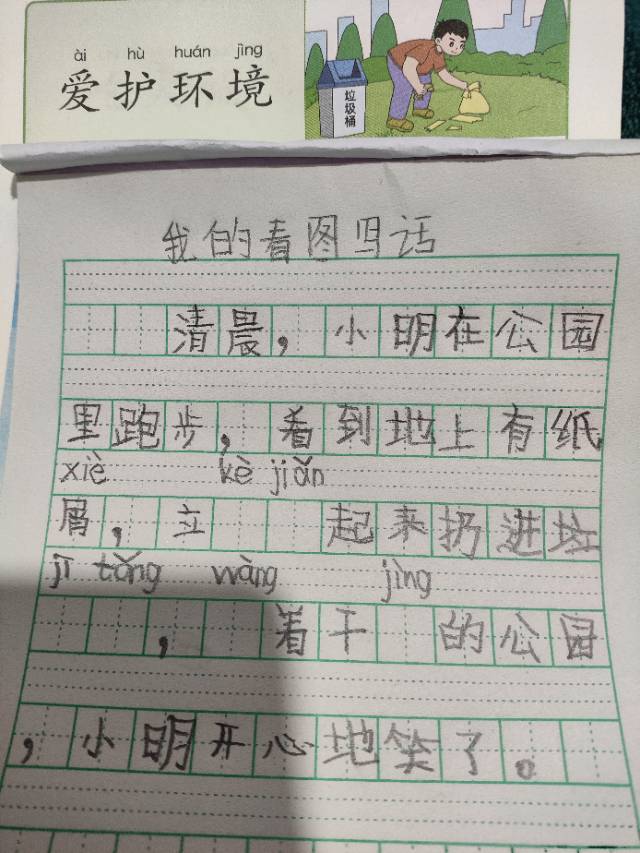 ài hù huán jìng
爱护环境
垃圾桶
我的看图写话
清晨，小明在公园
里跑步，看到地上有纸
xiè kè jiǎn
屑，立 起来扔进垃
jī tǒng wàng jìng
，着干 的公园
，小明开心地笑了。